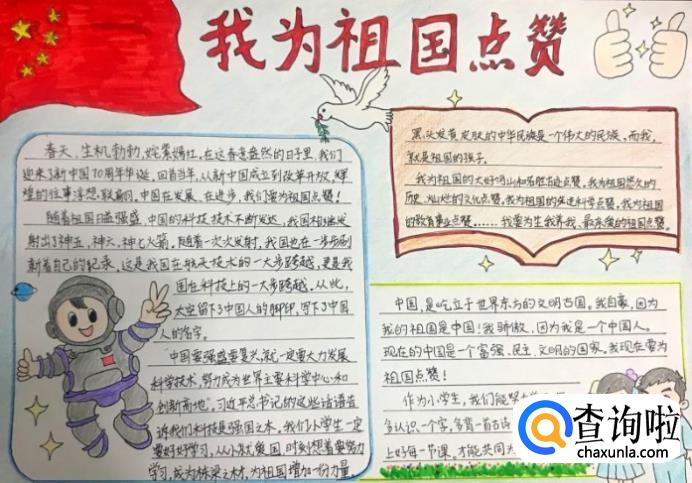 我为祖国点赞
春天,生机勃勃,姹紫嫣红,在这春意盎然的日子里,我们
迎来了新中国70周年华诞,回首当年,从新中国成立到改革开放,辉
煌的往事浮想联翩,中国在发展、在进步,我们要为祖国点赞!
随着祖国日益强盛,中国的科技技术不断发达,我国相继发
射出了神五,神六,神七火箭,随着一次次发射,我国也在一步步刷
新着自己的纪录,这是我国在航天技术的一大步跨越,更是我
国在科技上的一大步跨越,从此,
太空留下了中国人的脚印,写下了中国
人的名字。
"中国要强盛要复兴,就一定要大力发展
科学技术,努力成为世界主要科学中心和
创新高地"。习近平总书记的这些话语告
诉我们科技是强国之本,我们小学生一定
要好好学习,从小就爱国,时刻想着要努力
学习,成为栋梁之材,为祖国增加一份力量。
黑头发黄皮肤的中华民族是一个伟大的民族,而我,
就是祖国的孩子。
我为祖国的大好河山和名胜古迹点赞,我为祖国悠久的
历史,灿烂的文化点赞,我为祖国的先进科学点赞,我为祖国
的教育事业点赞……我要为生我养我、最亲爱的祖国点赞。
中国,是屹立于世界东方的文明古国。我自豪,因为
我的祖国是中国!我骄傲,因为我是一个中国人。
现在的中国是一个富强、民主、文明的国家,我现在要为
祖国点赞!
作为小学生,我们能努力
多认识一个字,多背一首古诗
上好每一节课,才能共同为
查询啦
chaxunla.com